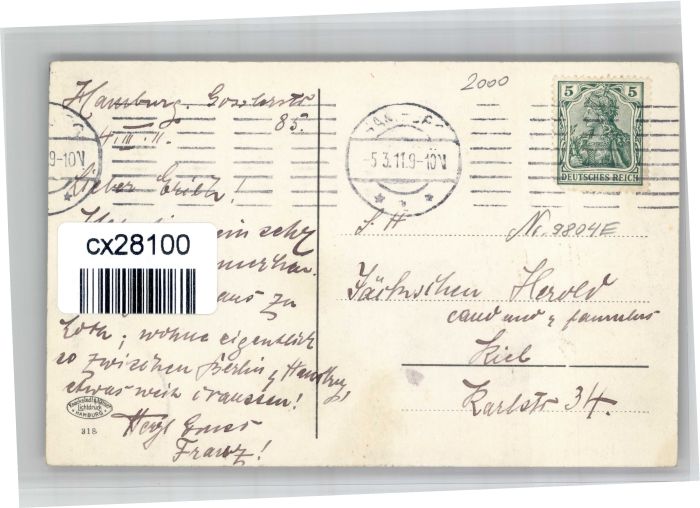 2000
Hamburg. Gosslerstr
85.
4. III. 11.
Lieber Erich!
ein sehr
aus zu
; wohne eigentlich
so zwischen Berlin & Hamburg,
etwas weit draussen!
Herzl Gruss
Franz!
HAMBURG
318
cx28100
HAMBURG
-5.3.11.9-10V
9-10V
5 5
DEUTSCHES REICH
S. H
Nr. 9804E
Herold
cand und & famulus
Kiel
Karlstr 34.